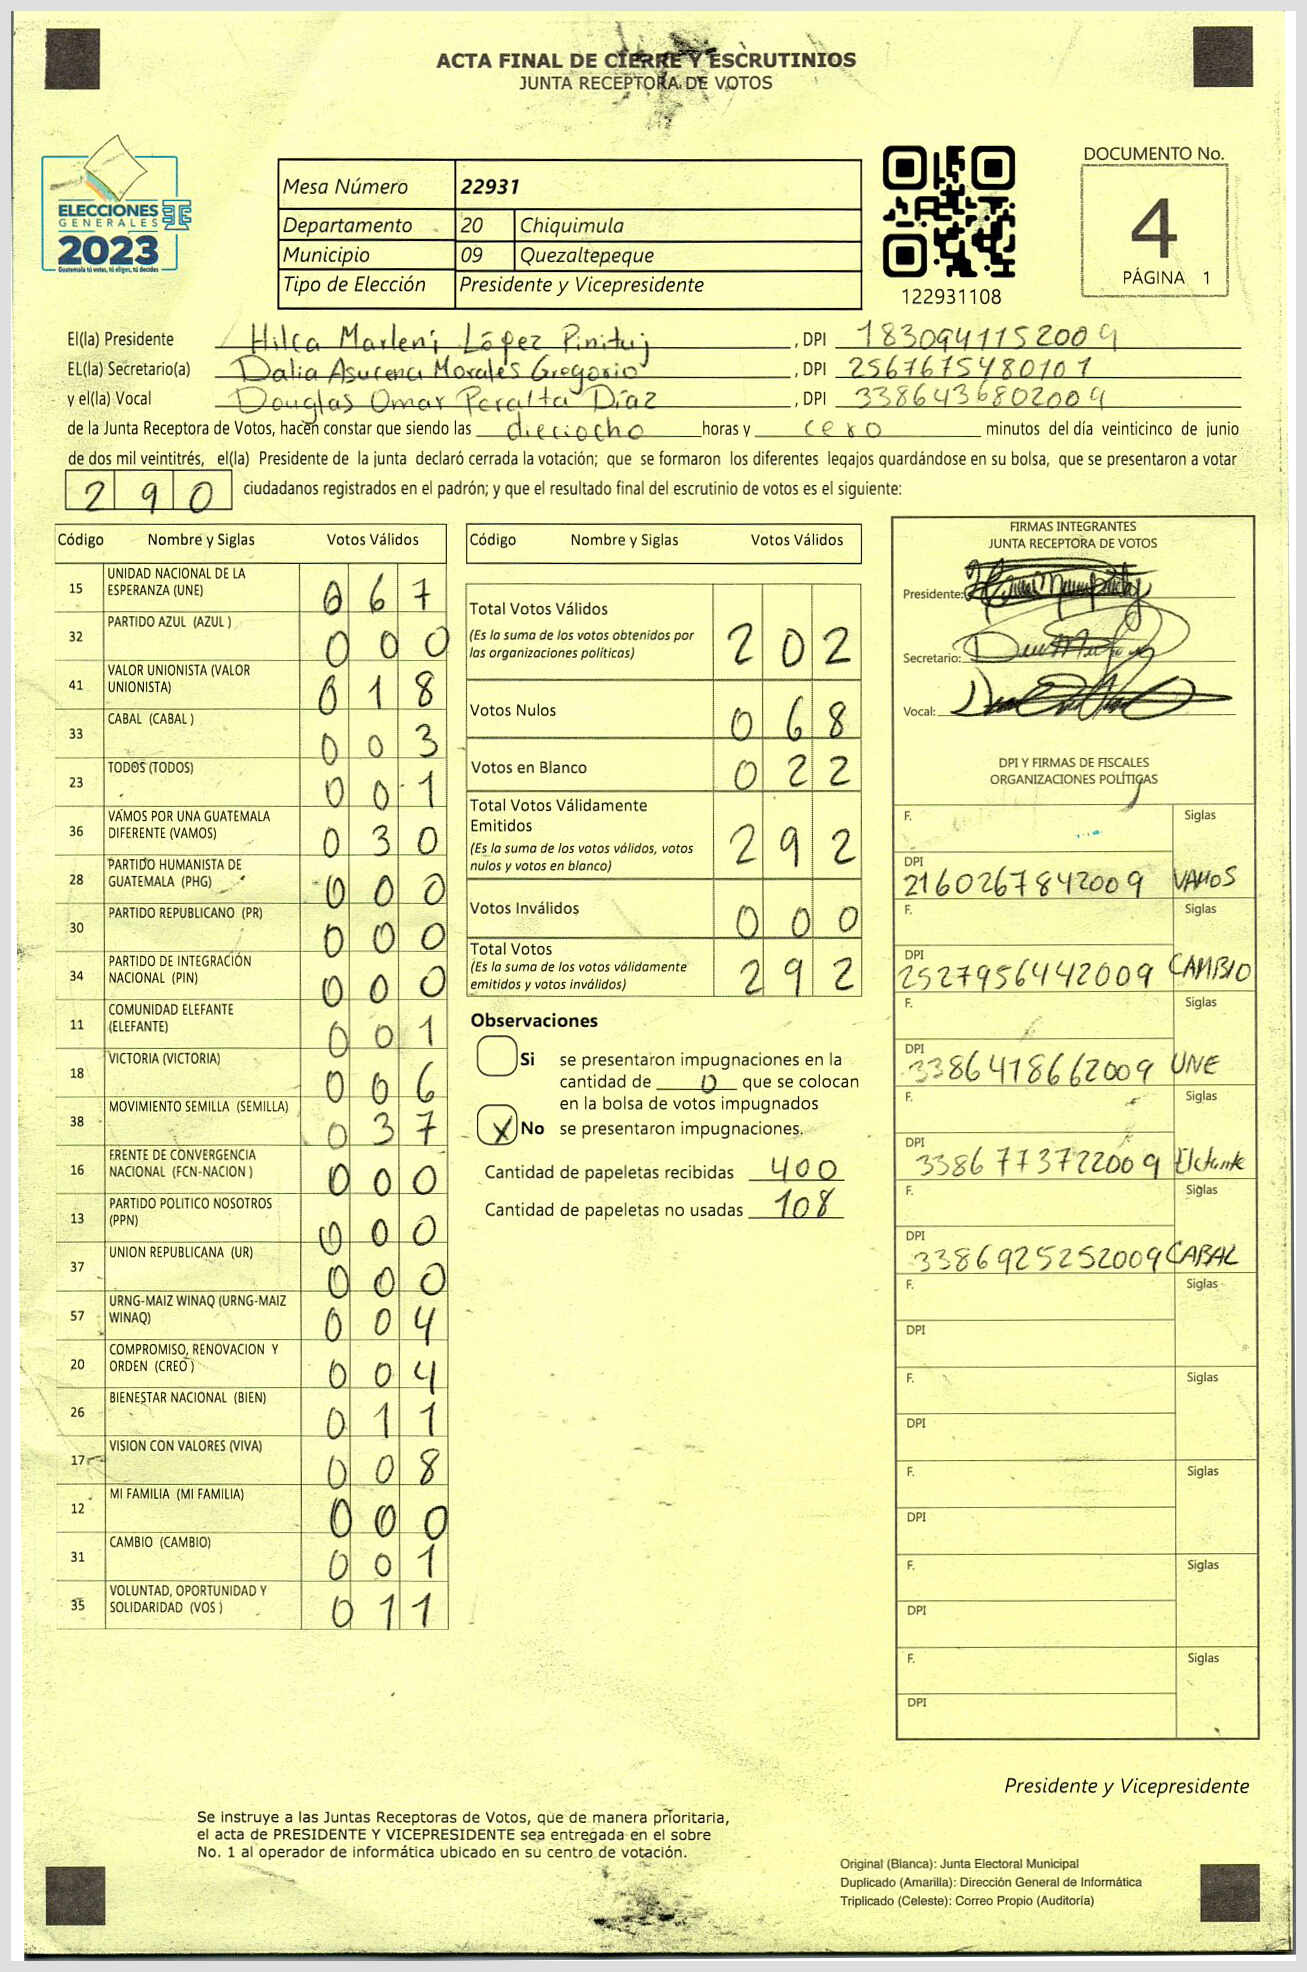 ACTA FINAL DE CIERRE Y ESCRUTINIOS
JUNTA RECEPTORA DE VOTOS
ELECCIONES
GENERALES
2023
Guatemala tú votas, tú eliges, tú decides
Mesa Número 22931
Departamento 20 Chiquimula
Municipio 09 Quezaltepeque
Tipo de Elección Presidente y Vicepresidente
122931108
DOCUMENTO No.
4
PÁGINA 1
El(la) Presidente Hilca Marleni López Pinituj, DPI 1830941152009
EL(la) Secretario(a) Dalia Asucena Morales Gregorio, DPI 2567675480101
y el(la) Vocal Douglas Omar Peralta Díaz, DPI 3386436802009
de la Junta Receptora de Votos, hacen constar que siendo las dieciocho horas y cero minutos del día veinticinco de junio
de dos mil veintitrés, el(la) Presidente de la junta declaró cerrada la votación; que se formaron los diferentes legajos guardándose en su bolsa, que se presentaron a votar
290 ciudadanos registrados en el padrón; y que el resultado final del escrutinio de votos es el siguiente:
Código Nombre y Siglas Votos Válidos
15 UNIDAD NACIONAL DE LA ESPERANZA (UNE) 067
32 PARTIDO AZUL (AZUL ) 000
41 VALOR UNIONISTA (VALOR UNIONISTA) 018
33 CABAL (CABAL ) 003
23 TODOS (TODOS) 001
36 VAMOS POR UNA GUATEMALA DIFERENTE (VAMOS) 030
28 PARTIDO HUMANISTA DE GUATEMALA (PHG) 000
30 PARTIDO REPUBLICANO (PR) 000
34 PARTIDO DE INTEGRACIÓN NACIONAL (PIN) 000
11 COMUNIDAD ELEFANTE (ELEFANTE) 001
18 VICTORIA (VICTORIA) 006
38 MOVIMIENTO SEMILLA (SEMILLA) 037
16 FRENTE DE CONVERGENCIA NACIONAL (FCN-NACION ) 000
13 PARTIDO POLITICO NOSOTROS (PPN) 000
37 UNION REPUBLICANA (UR) 000
57 URNG-MAIZ WINAQ (URNG-MAIZ WINAQ) 004
20 COMPROMISO, RENOVACION Y ORDEN (CREO ) 004
26 BIENESTAR NACIONAL (BIEN) 011
17 VISION CON VALORES (VIVA) 008
12 MI FAMILIA (MI FAMILIA) 000
31 CAMBIO (CAMBIO) 001
35 VOLUNTAD, OPORTUNIDAD Y SOLIDARIDAD (VOS ) 011
Código Nombre y Siglas Votos Válidos
Total Votos Válidos 202
(Es la suma de los votos obtenidos por
las organizaciones políticas)
Votos Nulos 068
Votos en Blanco 022
Total Votos Válidamente
Emitidos 292
(Es la suma de los votos válidos, votos
nulos y votos en blanco)
Votos Inválidos 000
Total Votos 292
(Es la suma de los votos válidamente
emitidos y votos inválidos)
Observaciones
Si se presentaron impugnaciones en la
cantidad de 0 que se colocan
en la bolsa de votos impugnados
X No se presentaron impugnaciones.
Cantidad de papeletas recibidas 400
Cantidad de papeletas no usadas 108
FIRMAS INTEGRANTES
JUNTA RECEPTORA DE VOTOS
Presidente:
Secretario:
Vocal:
DPI Y FIRMAS DE FISCALES
ORGANIZACIONES POLÍTICAS
F. Siglas
DPI 2160267842009 VAMOS
F. Siglas
DPI 2527956442009 CAMBIO
F. Siglas
DPI 3386418662009 UNE
F. Siglas
DPI 3386773722009 Elefante
F. Siglas
DPI 3386925252009 CABAL
F. Siglas
DPI
F. Siglas
DPI
F. Siglas
DPI
F. Siglas
DPI
F. Siglas
DPI
Presidente y Vicepresidente
Se instruye a las Juntas Receptoras de Votos, que de manera prioritaria,
el acta de PRESIDENTE Y VICEPRESIDENTE sea entregada en el sobre
No. 1 al operador de informática ubicado en su centro de votación.
Original (Blanca): Junta Electoral Municipal
Duplicado (Amarilla): Dirección General de Informática
Triplicado (Celeste): Correo Propio (Auditoría)